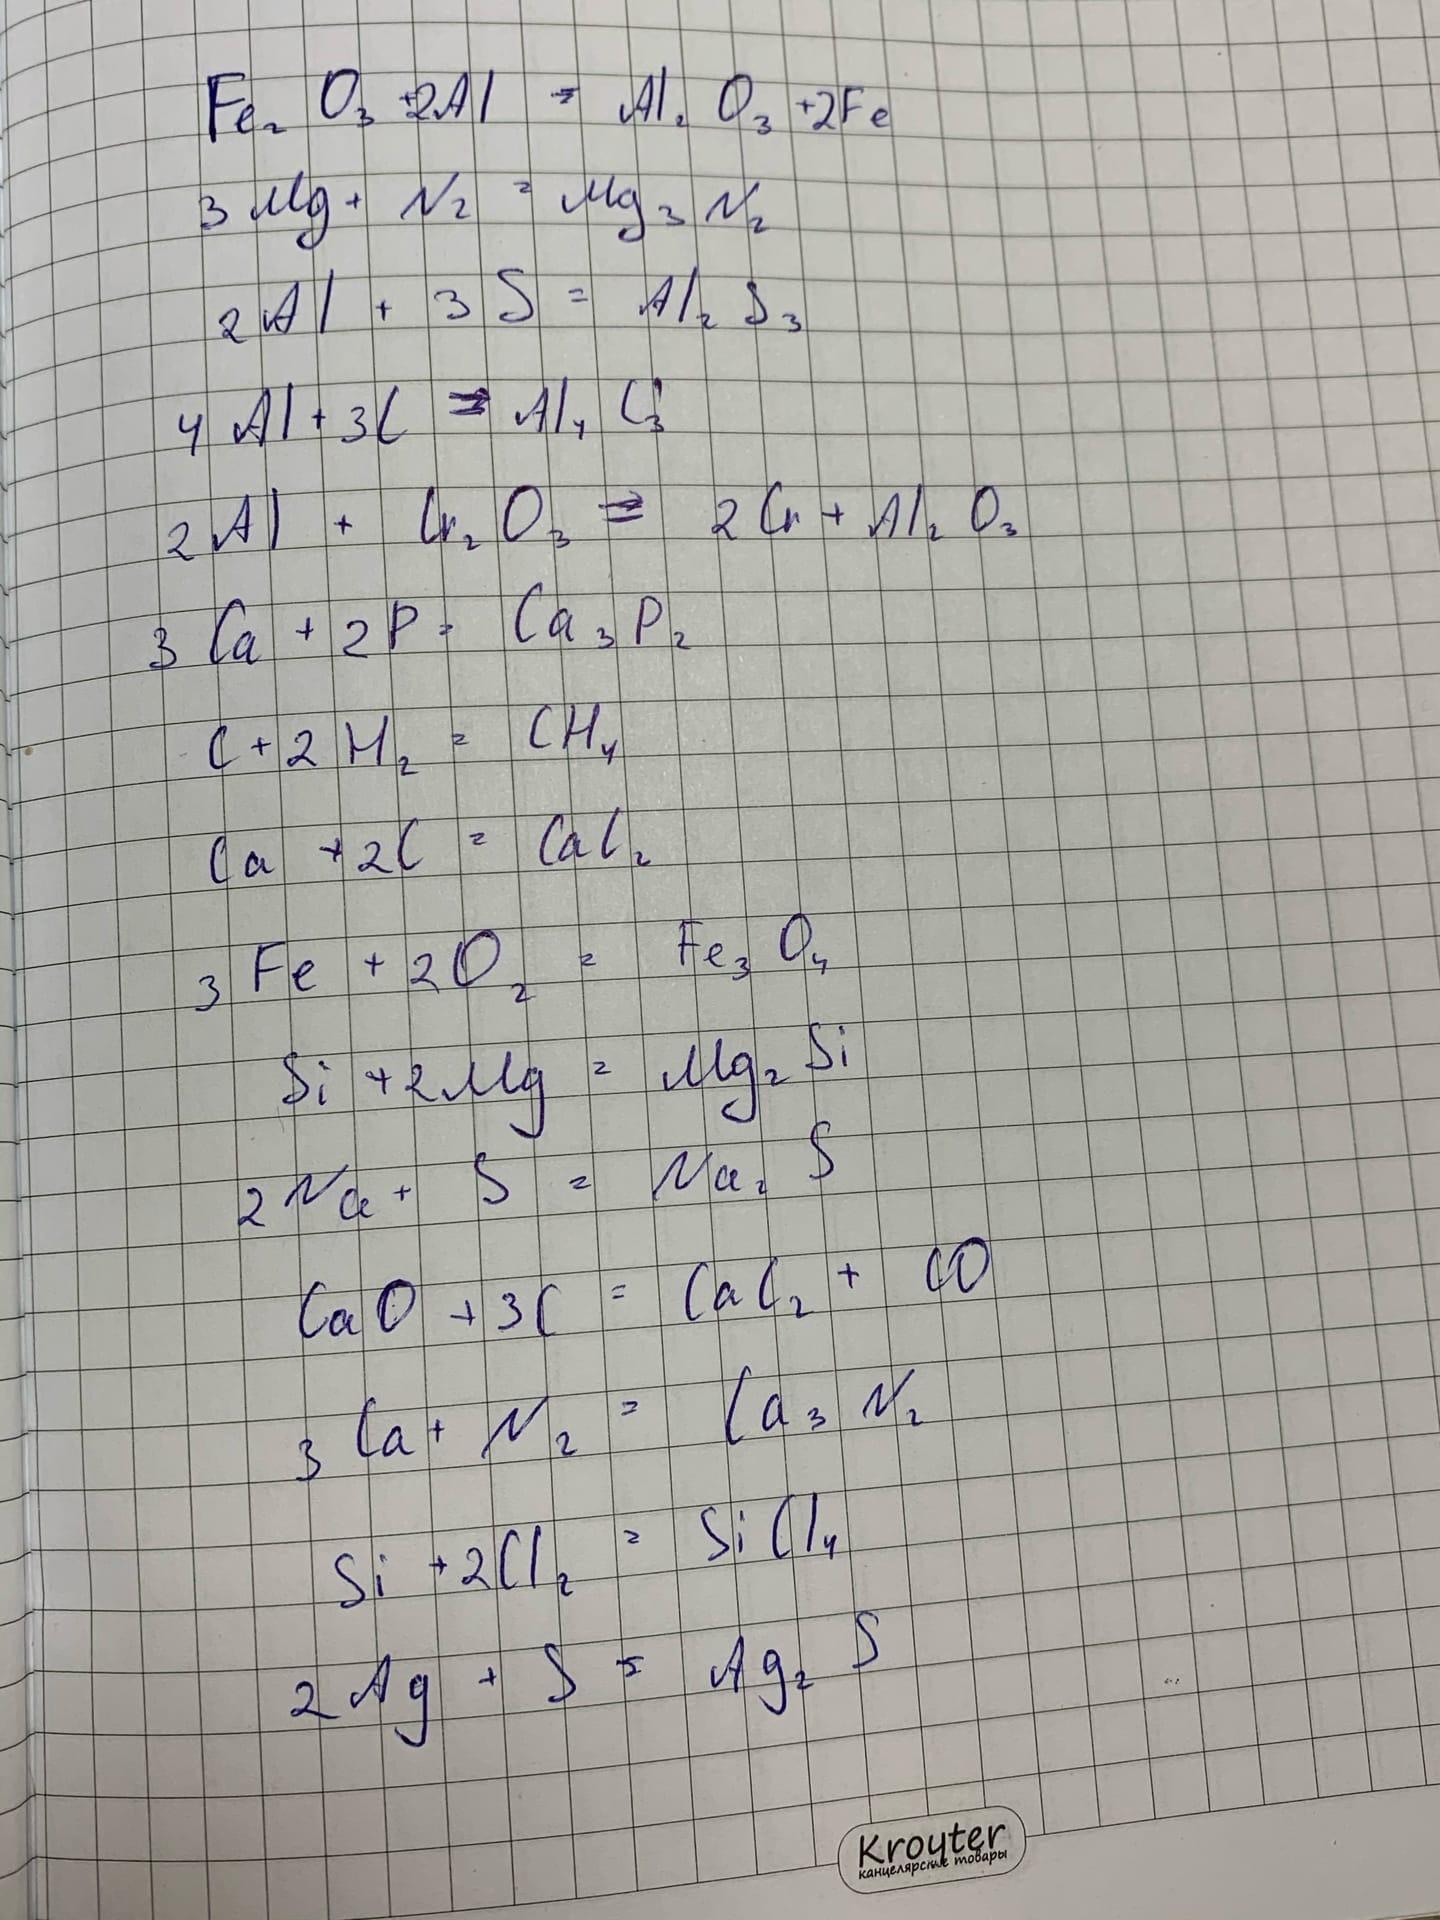 Fe₂O₃ + 2Al = Al₂O₃ + 2Fe
3Mg + N₂ = Mg₃N₂
2Al + 3S = Al₂S₃
4Al + 3C = Al₄C₃
2Al + Cr₂O₃ = 2Cr + Al₂O₃
3Ca + 2P = Ca₃P₂
C + 2H₂ = CH₄
Ca + 2C = CaC₂
3Fe + 2O₂ = Fe₃O₄
Si + 2Mg = Mg₂Si
2Na + S = Na₂S
CaO + 3C = CaC₂ + CO
3Ca + N₂ = Ca₃N₂
Si + 2Cl₂ = SiCl₄
2Ag + S = Ag₂S
Kroyter
канцелярские товары